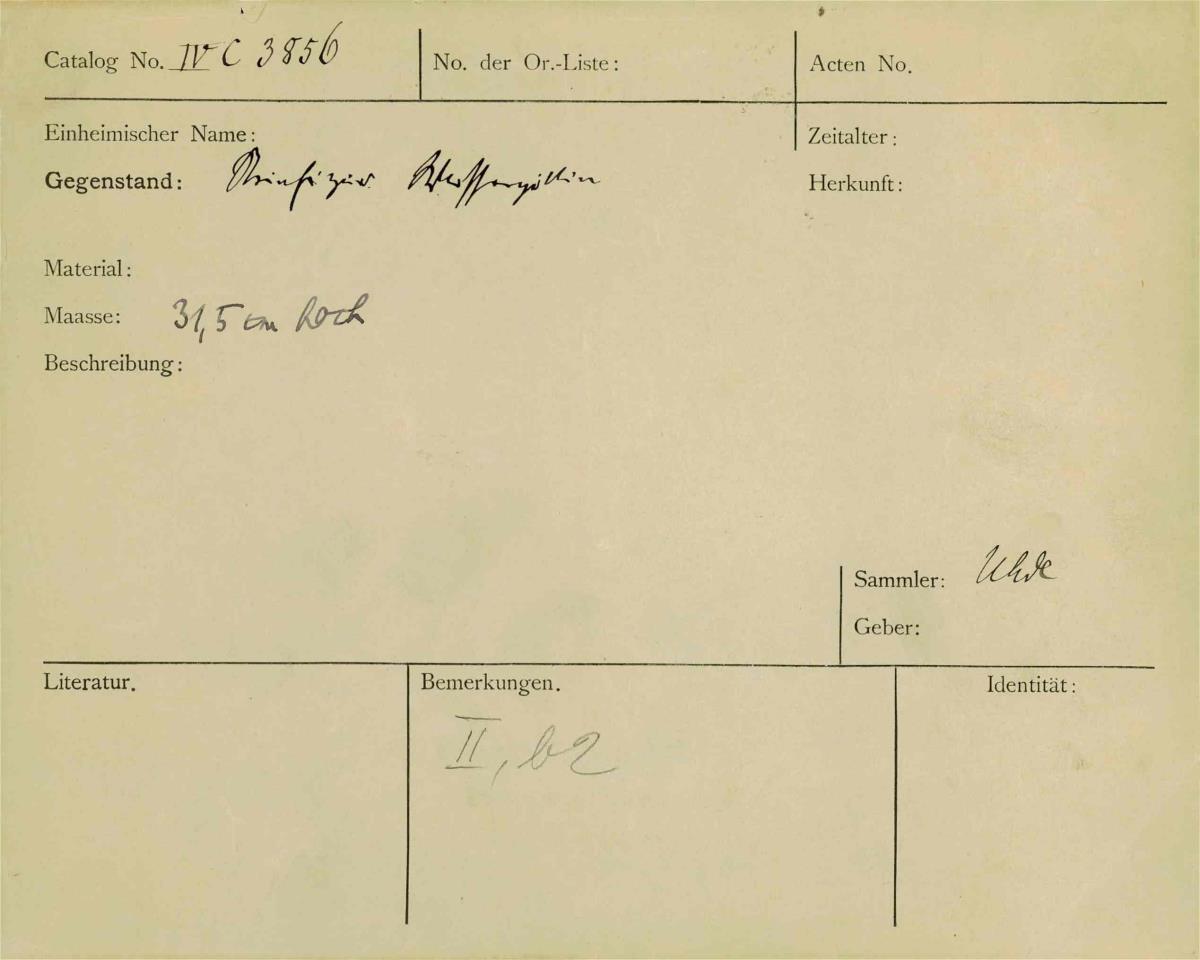 Catalog No. IV C 3856
No. der Or.-Liste:
Acten No.
Einheimischer Name:
Zeitalter:
Gegenstand: Steinfigur Wassergöttin
Herkunft:
Material:
Maasse: 31,5 cm hoch
Beschreibung:
Sammler: Uhde
Geber:
Literatur.
Bemerkungen.
Identität:
II, b2